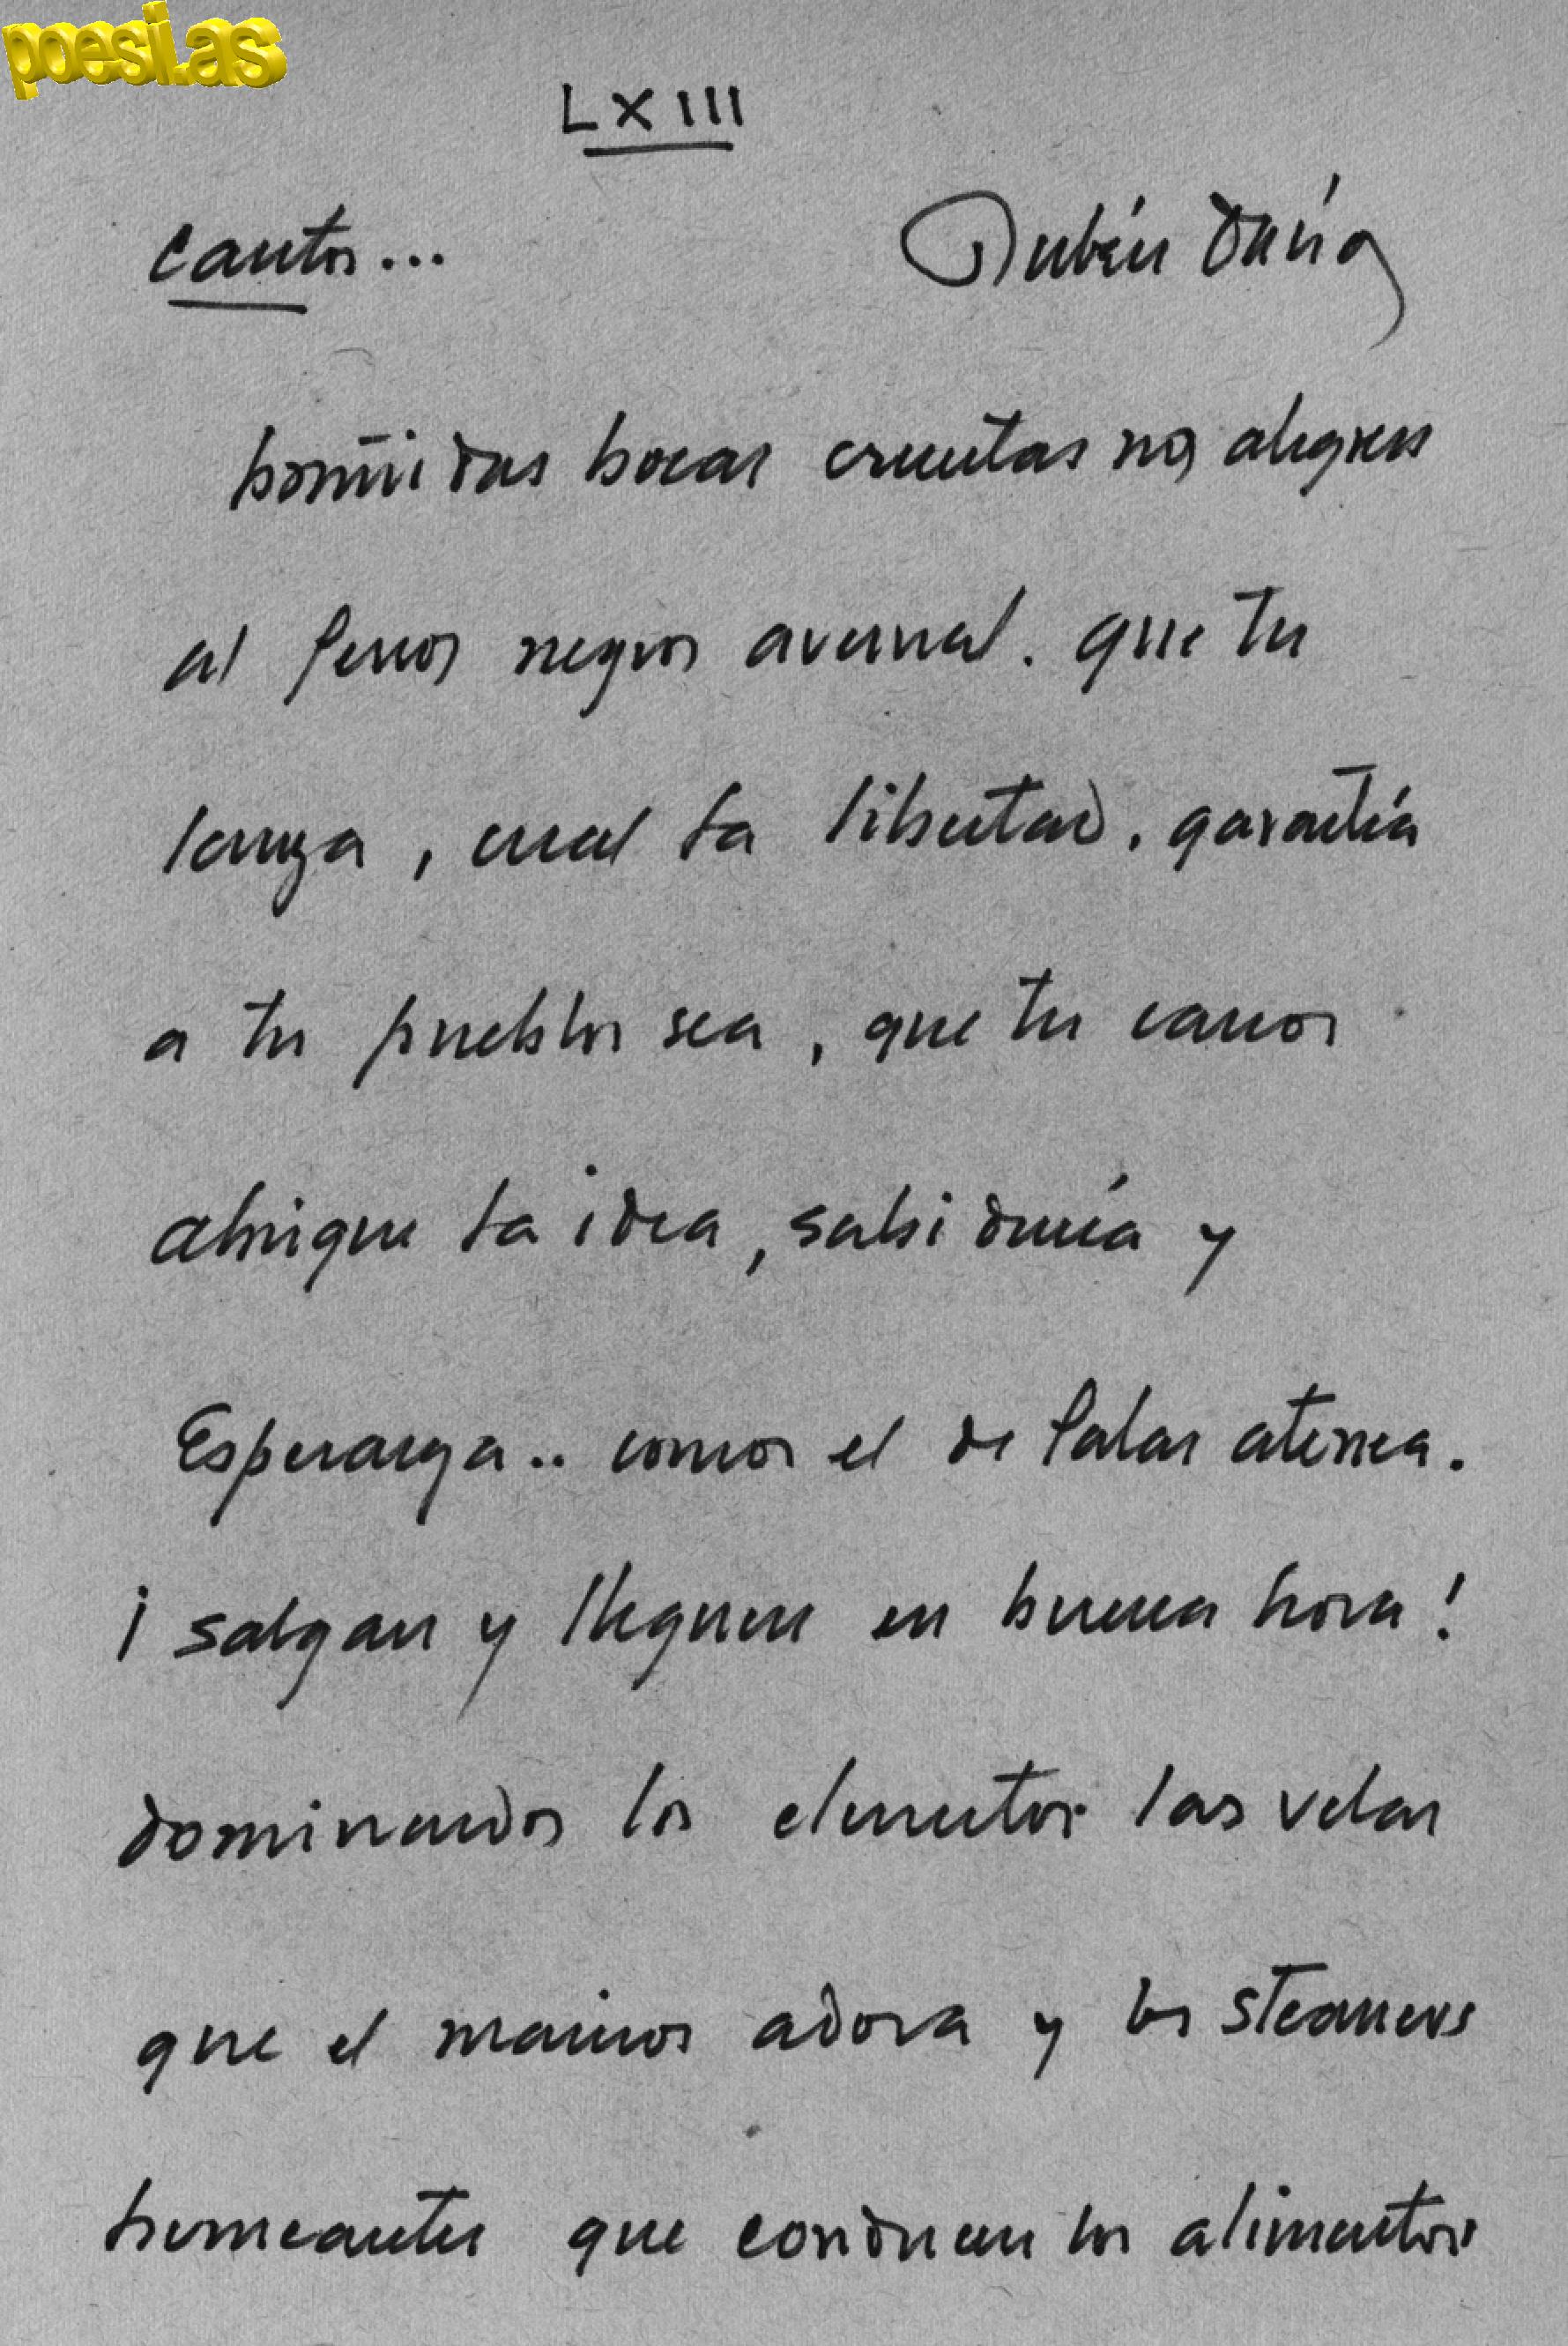 poesi.as
LXIII
Cantos... Rubén Darío
homicidas bocas cruentas no alegres
al perro negro avernal. que tu
lanza, cual la libertad, garantía
a tu pueblo sea, que tu casco
abrigue la idea, sabiduría y
Esperanza.. como el de Palas atenea.
¡salgan y lleguen en buena hora!
dominando los elementos las velas
que el marino adora y los steamers
humeantes que conducen los alimentos